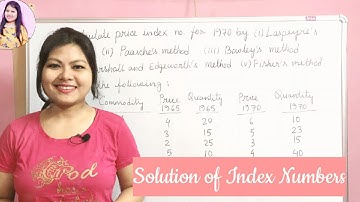 ulate price index no. for 1970 by (i) Laspeyre's
(ii) Paasche's method (iii) Bowley's method
arshall and Edgeworth's method (v) Fisher's method
he following:
Commodity Price 1965 Quantity 1965 Price 1970 Quantity 1970
4 20 6 10
3 15 5 23
2 25 3 15
5 10 4 40
Solution of Index Numbers